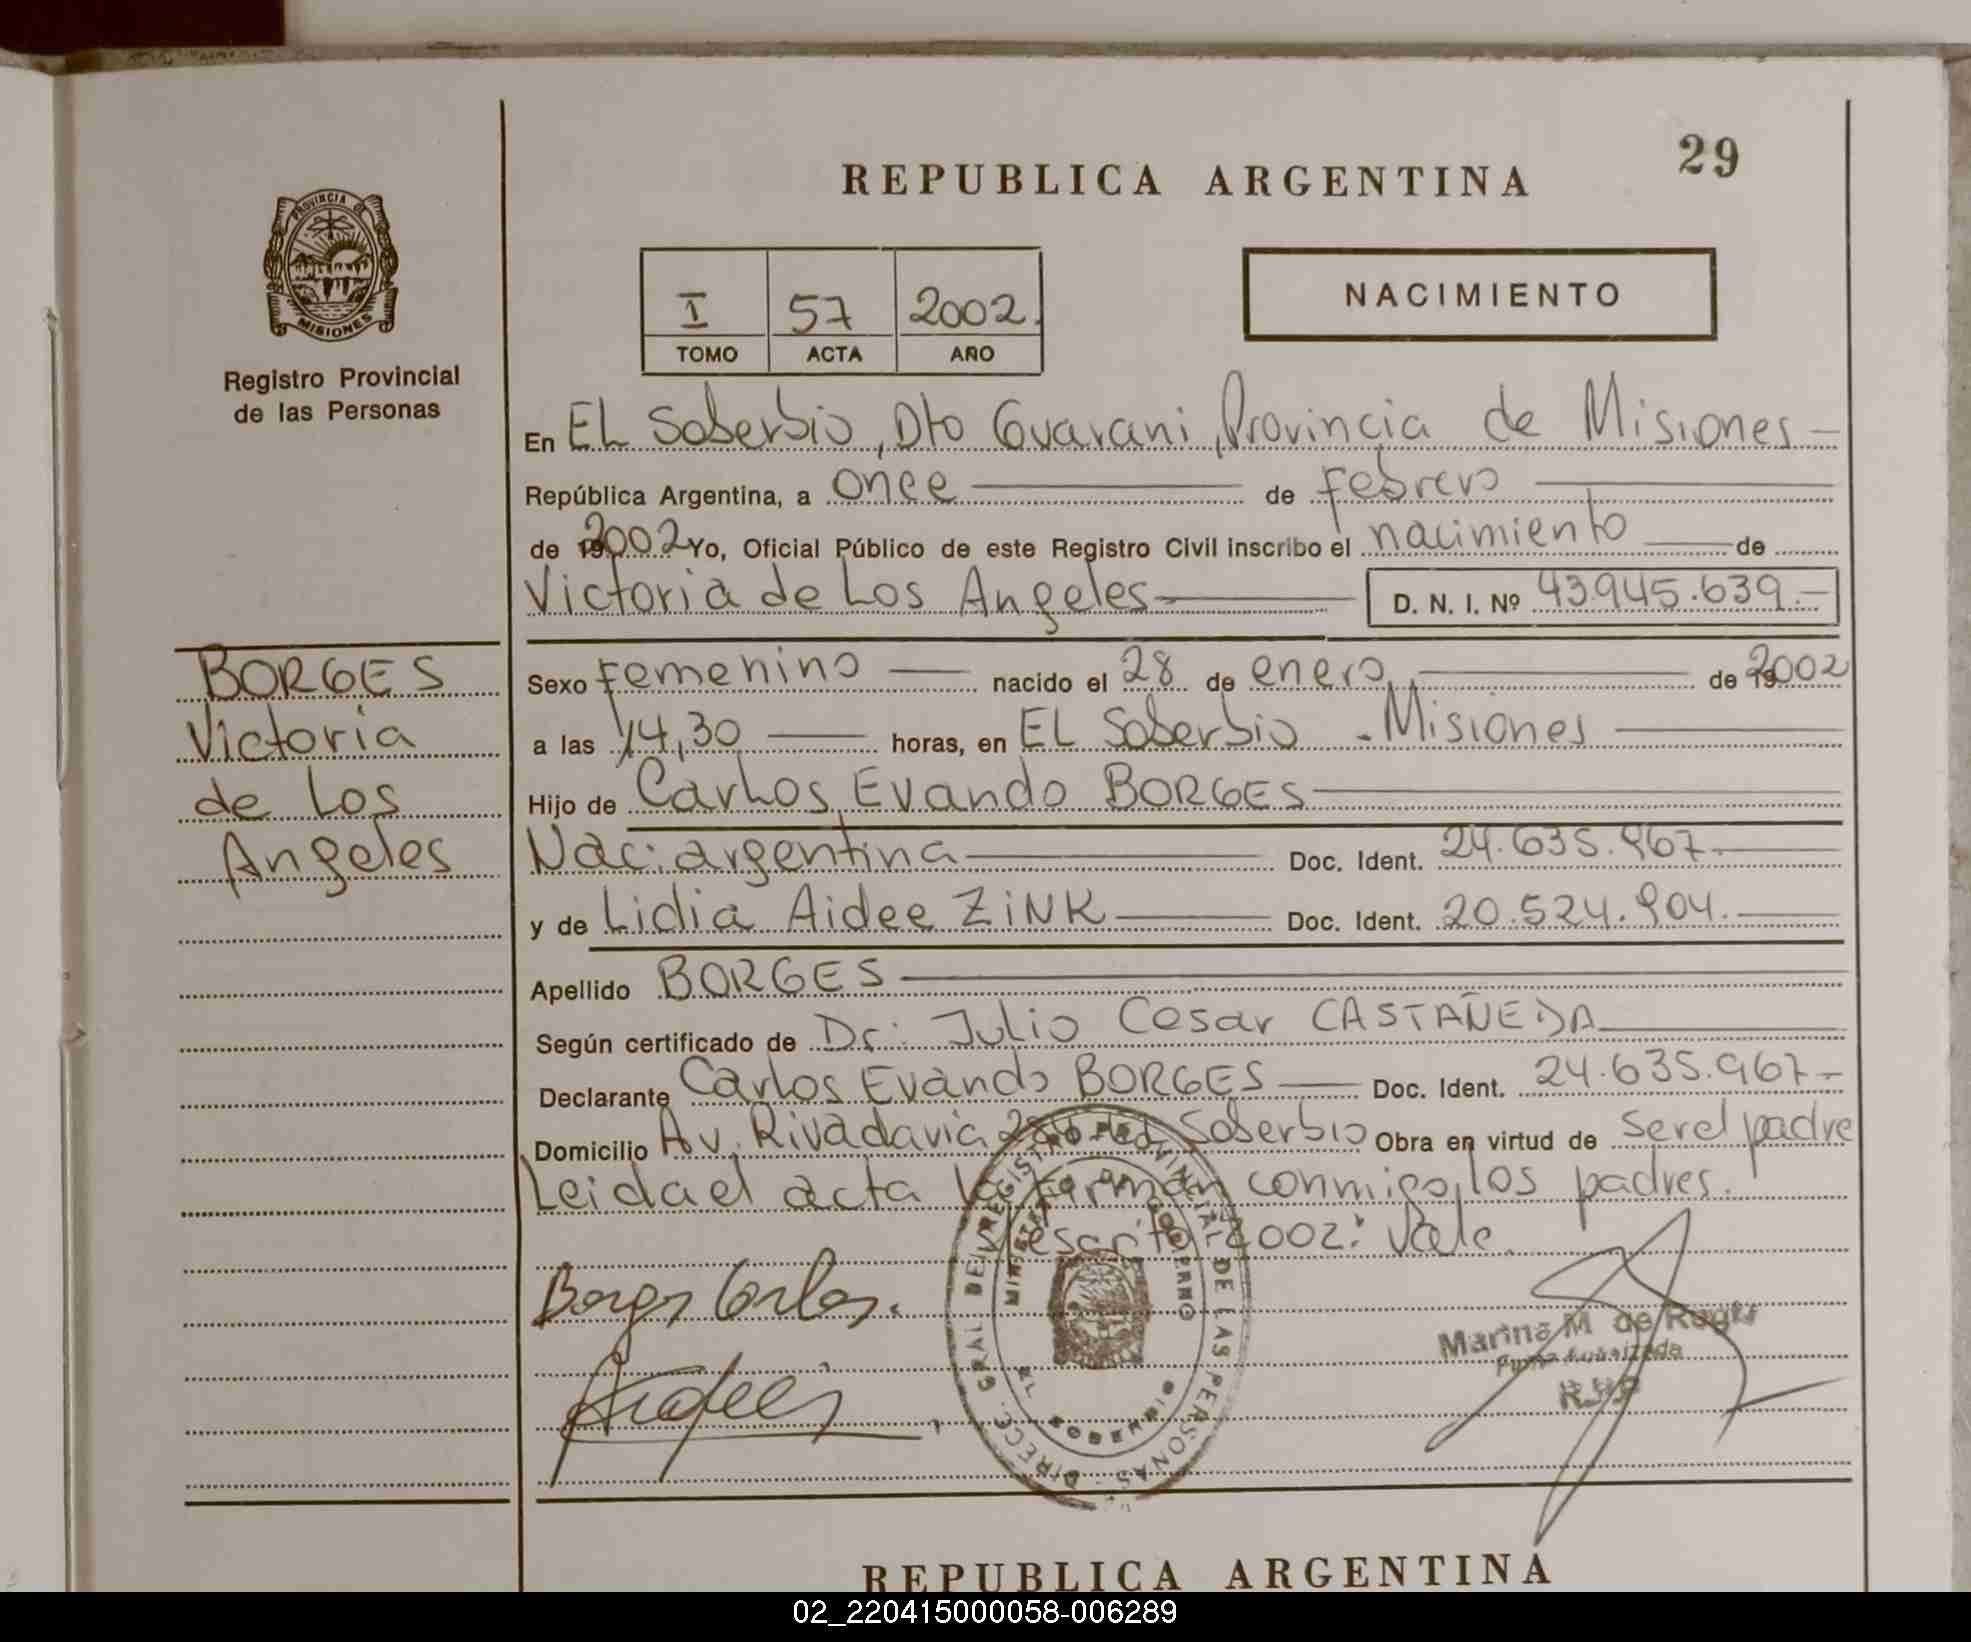 29
REPUBLICA ARGENTINA
PROVINCIA DE
MISIONES
Registro Provincial
de las Personas
I 57 2002
TOMO ACTA AÑO
NACIMIENTO
En EL Soberbio, Dto Guarani, Provincia de Misiones
República Argentina, a once de febrero
de 2002 Yo, Oficial Público de este Registro Civil inscribo el nacimiento de
Victoria de Los Angeles D. N. I. Nº 43.945.639.-
BORGES
Victoria
de Los
Angeles
Sexo Femenino nacido el 28 de enero de 2002
a las 14,30 horas, en EL Soberbio - Misiones
Hijo de Carlos Evando BORGES
Nac: argentina Doc. Ident. 24.635.967.-
y de Lidia Aidee ZiNK Doc. Ident. 20.524.904.-
Apellido BORGES
Según certificado de Dr: Julio Cesar CASTAÑEDA
Declarante Carlos Evando BORGES Doc. Ident. 24.635.967-
Domicilio Av. Rivadavia Soberbio Obra en virtud de ser el padre
Leida el acta la firman conmigo, los padres.
escrito: 2002: Vale.
Borges Carlos.
DIRECC. GRAL DEL REGISTRO PROVINCIAL DE LAS PERSONAS
MINISTERIO DE GOBIERNO
EL SOBERBIO
Marina M de
REPUBLICA ARGENTINA
02_220415000058-006289